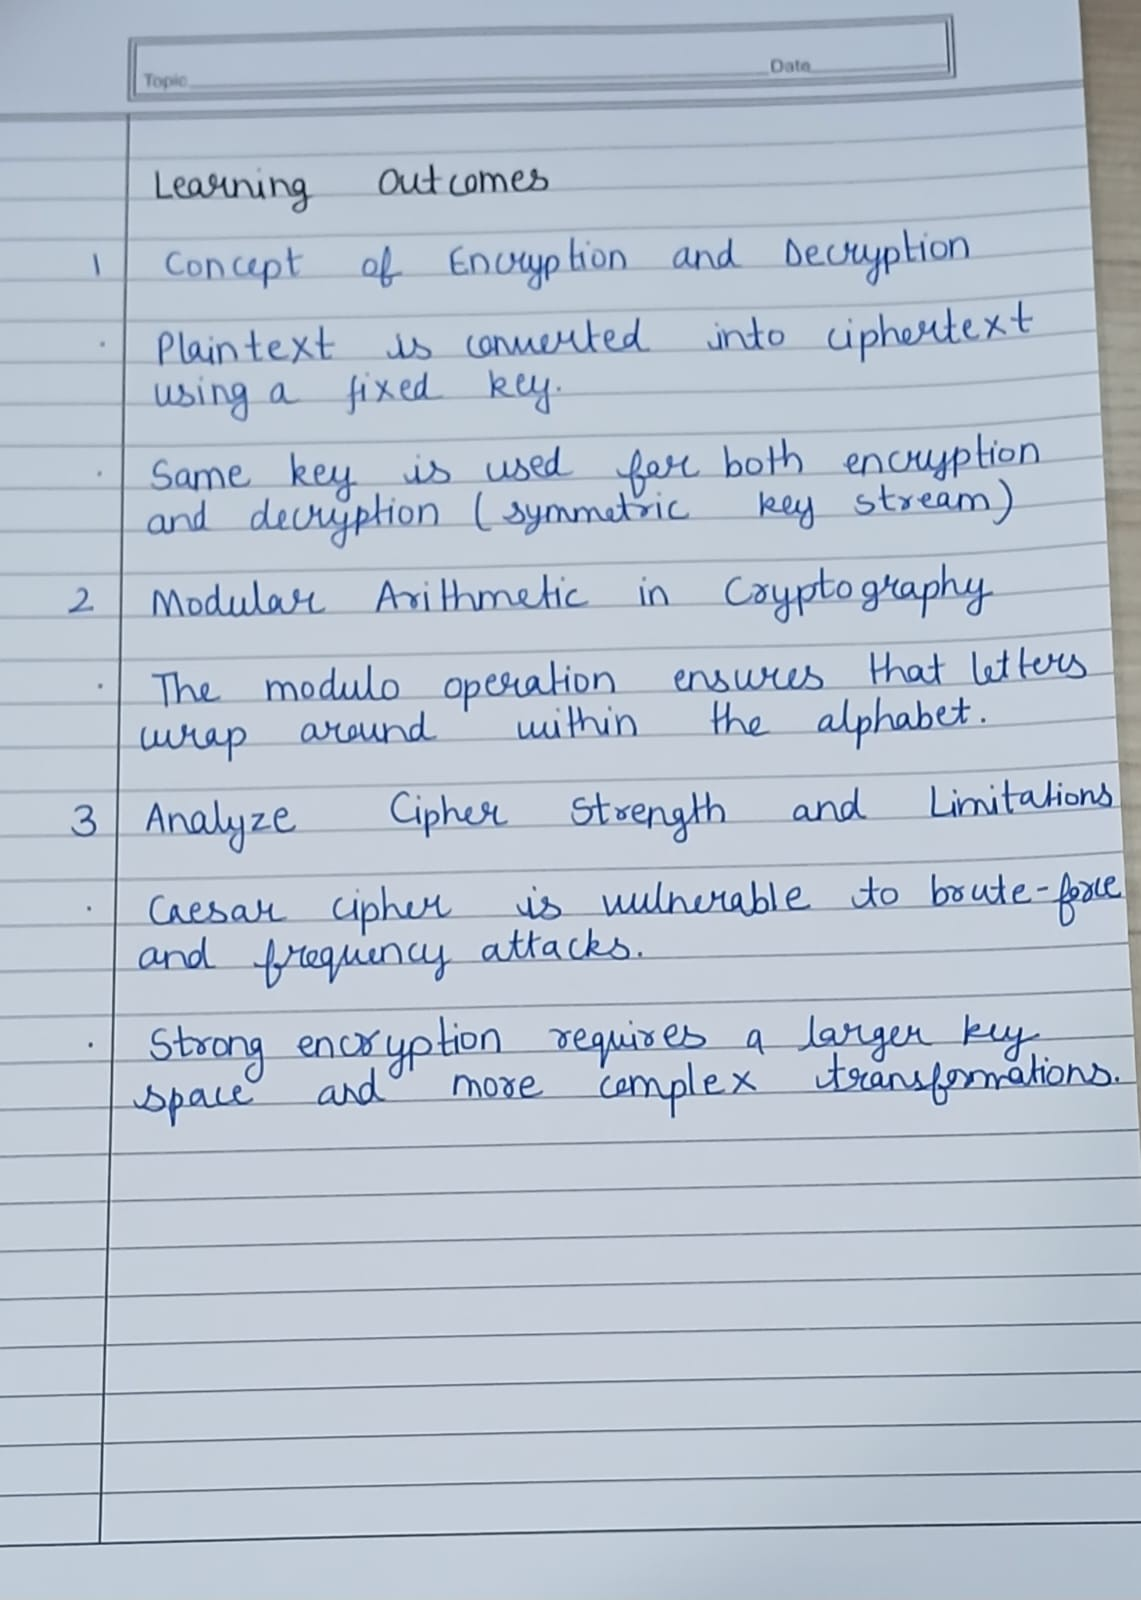 Topic Date
Learning Outcomes
1 Concept of Encryption and Decryption
· Plaintext is converted into ciphertext
using a fixed key.
· Same key is used for both encryption
and decryption (symmetric key stream)
2 Modular Arithmetic in Cryptography
· The modulo operation ensures that letters
wrap around within the alphabet.
3 Analyze Cipher Strength and Limitations
· Caesar cipher is vulnerable to brute-force
and frequency attacks.
· Strong encryption requires a larger key
space and more complex transformations.